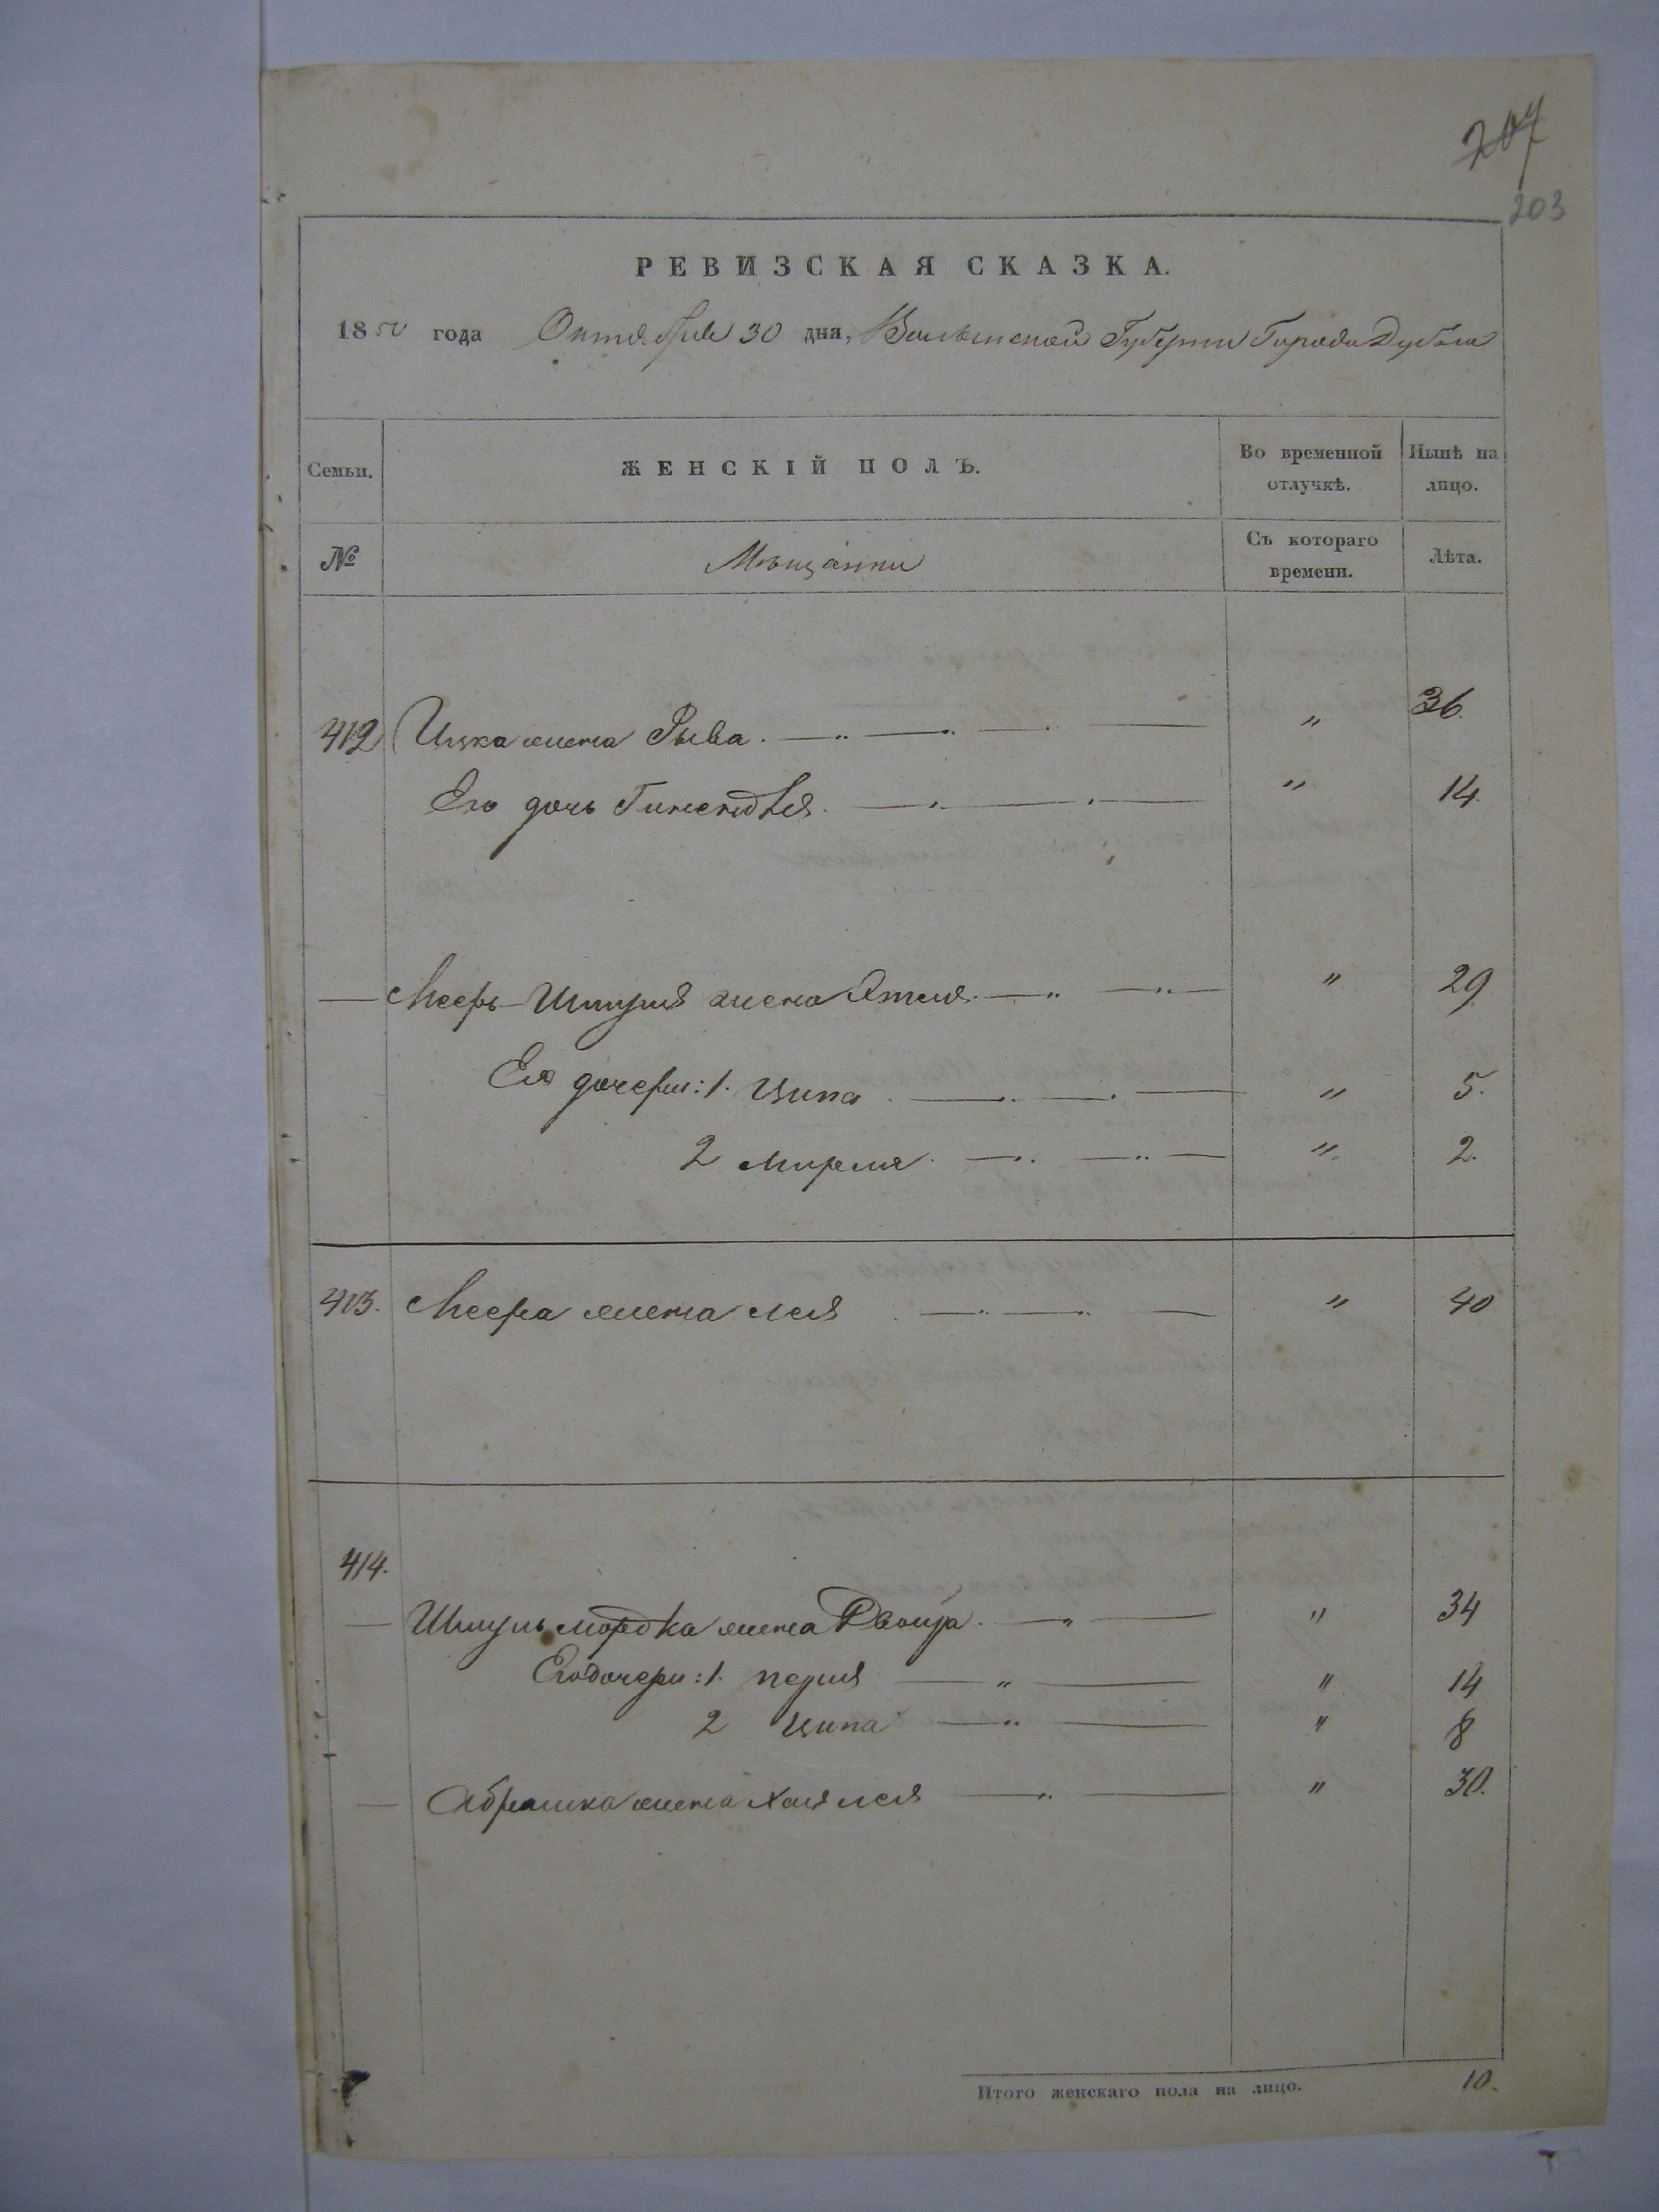 207
203
РЕВИЗСКАЯ СКАЗКА.
1850 года Октября 30 дня, Волынской Губернии Города Дубна
Семьи. ЖЕНСКІЙ ПОЛЪ. Во временной отлучкѣ. Нынѣ на лицо.
№ Мѣщанки Съ котораго времени. Лѣта.
412 Ицка жена Рыва " 36.
Его дочь " 14.
— Меерь-Шмуля жена Этля " 29
Его дочери: 1. Ципа " 5.
2 Мирля " 2.
413. Меера жена Лея " 40
414.
— Шмуль Мордка жена Двойра " 34
Его дочери: 1. Перля " 14
2 Ципа " 8
— Абрамка жена Хая Лея " 30.
Итого женскаго пола на лицо. 10.